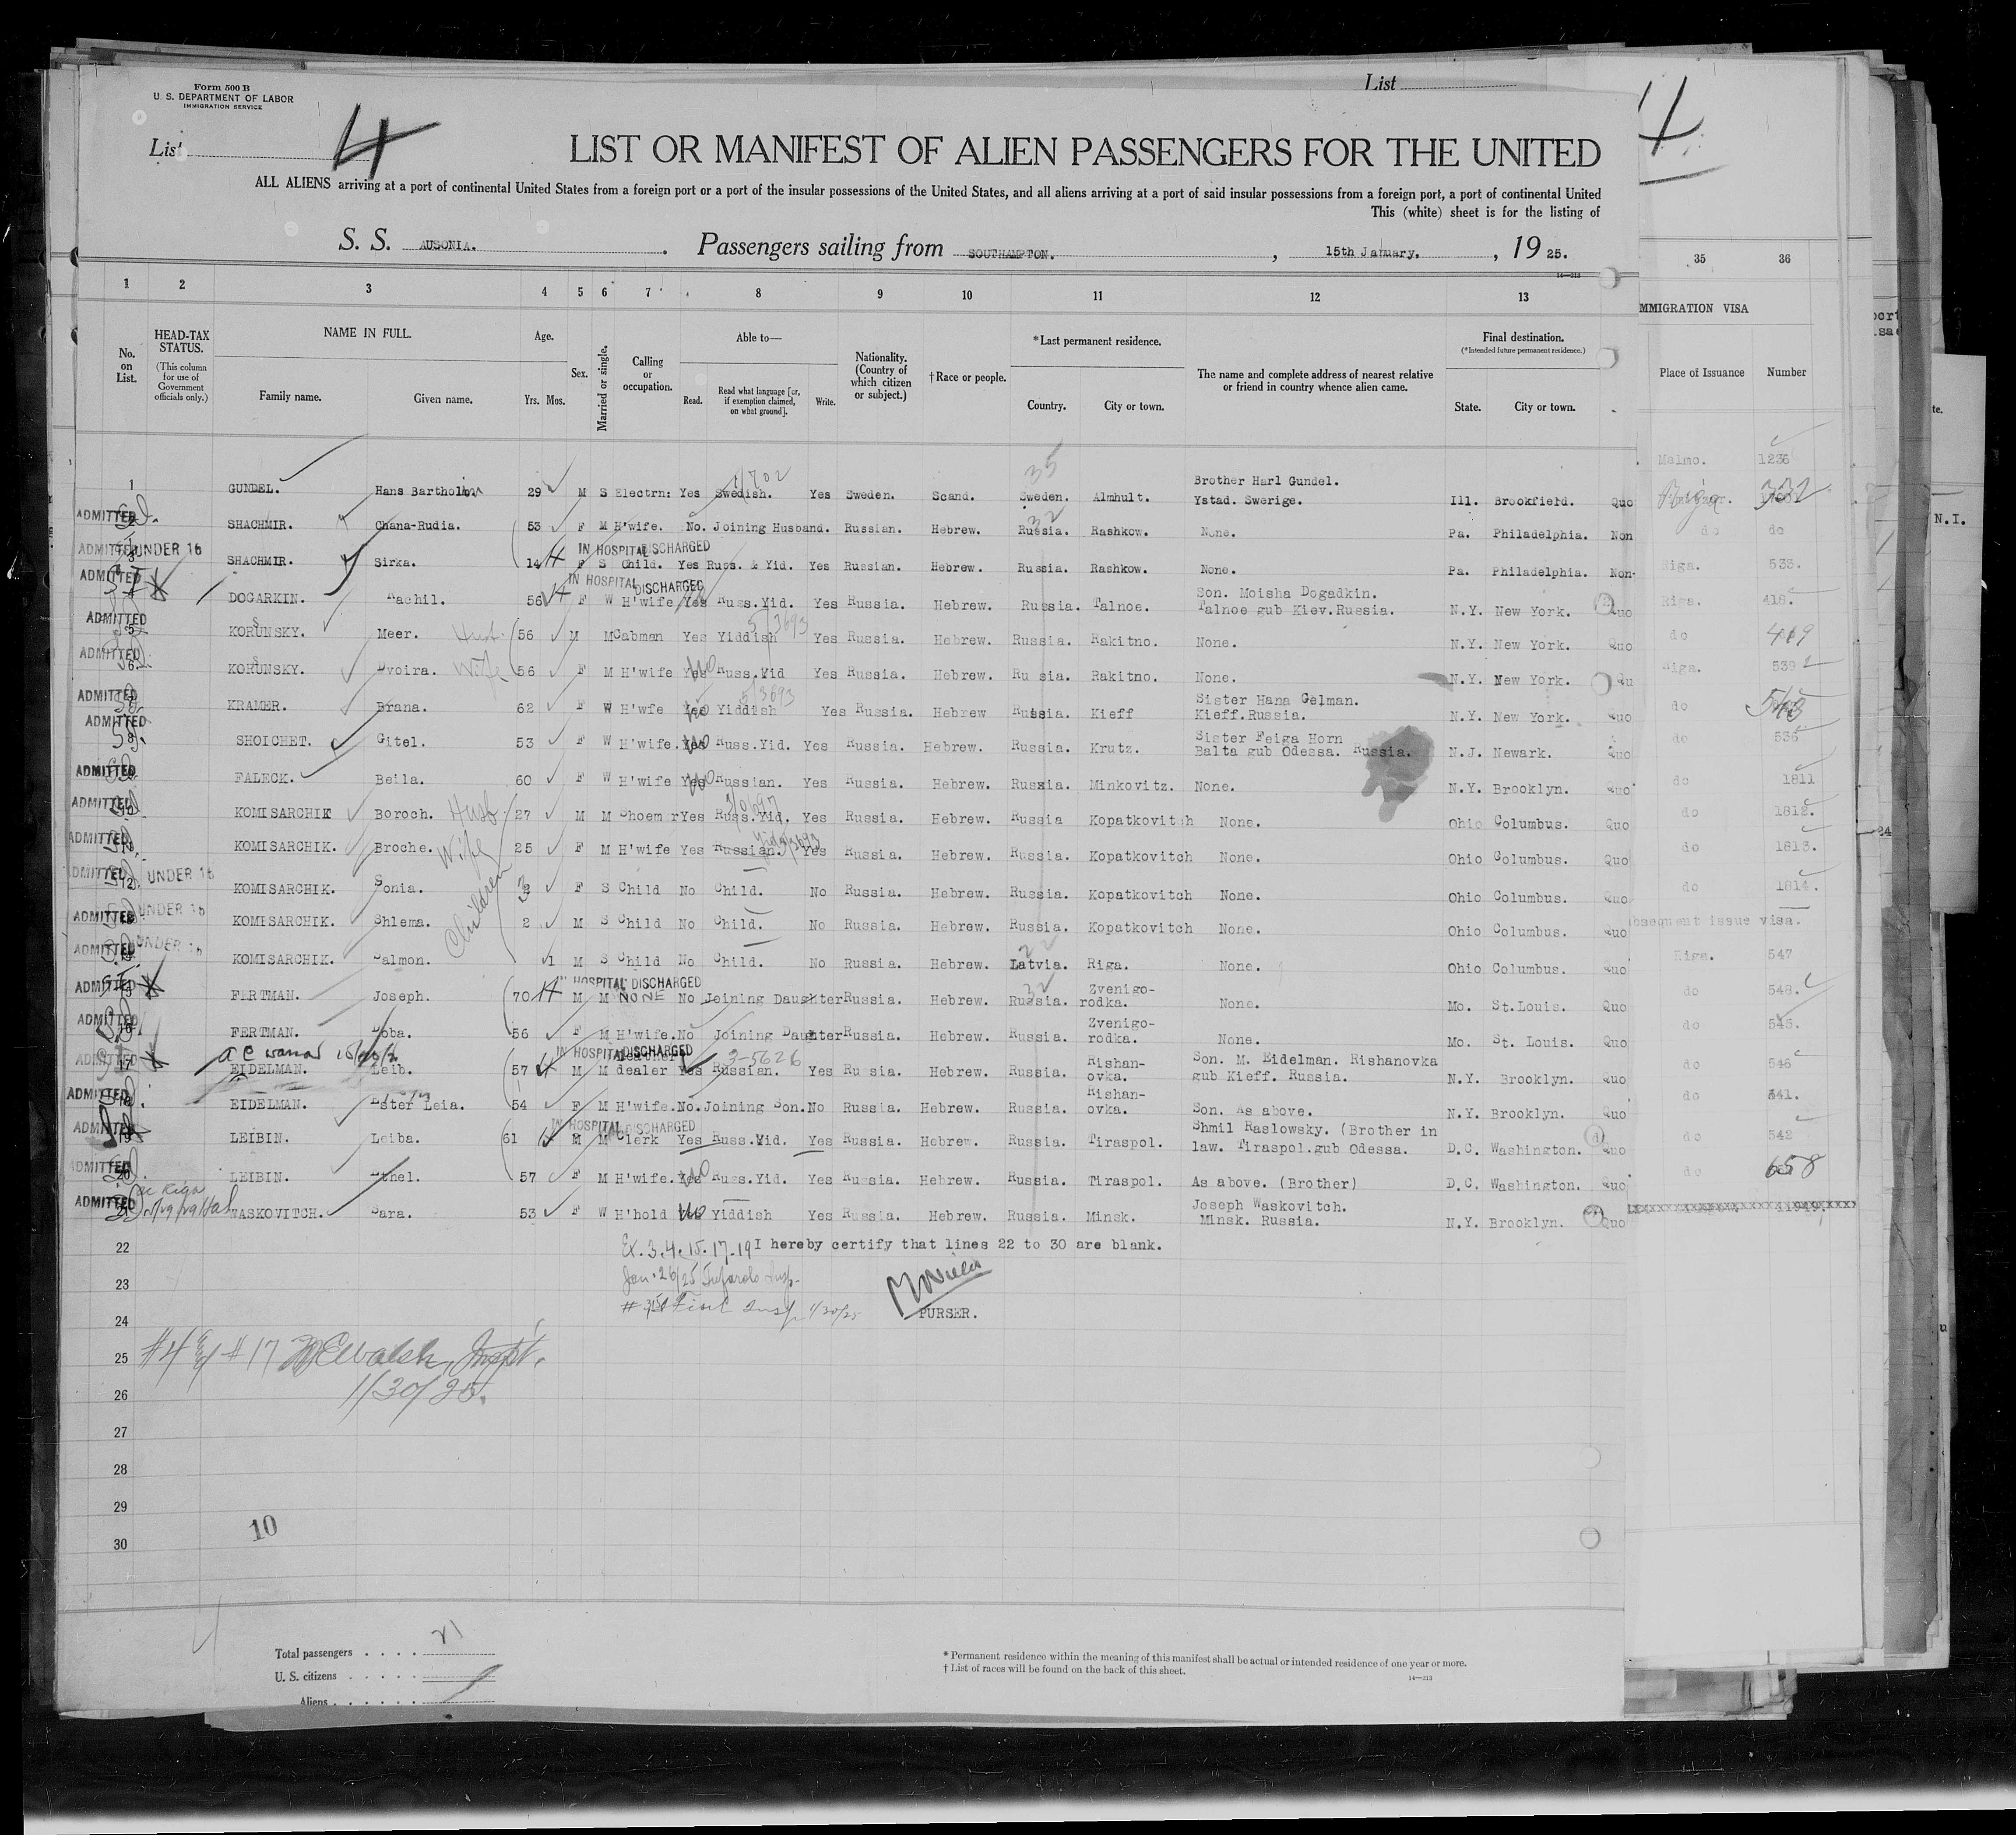 Form 500 B
U. S. DEPARTMENT OF LABOR
IMMIGRATION SERVICE
List
List 4
LIST OR MANIFEST OF ALIEN PASSENGERS FOR THE UNITED
ALL ALIENS arriving at a port of continental United States from a foreign port or a port of the insular possessions of the United States, and all aliens arriving at a port of said insular possessions from a foreign port, a port of continental United
This (white) sheet is for the listing of
S. S. AUSONIA. Passengers sailing from SOUTHAMPTON. , 15th January. , 19 25.
14—213
1 2 3 4 5 6 7 8 9 10 11 12 13 35 36
No. on List.
HEAD-TAX STATUS.
(This column for use of Government officials only.)
NAME IN FULL.
Family name. Given name.
Age.
Yrs. Mos.
Sex.
Married or single.
Calling or occupation.
Able to—
Read. Read what language [or, if exemption claimed, on what ground]. Write.
Nationality. (Country of which citizen or subject.)
†Race or people.
*Last permanent residence.
Country. City or town.
The name and complete address of nearest relative or friend in country whence alien came.
Final destination.
(*Intended future permanent residence.)
State. City or town.
MMIGRATION VISA
Place of Issuance Number
Malmo. 1236
1 GUNDEL. Hans Barthol 29 M S Electrn: Yes Swedish. Yes Sweden. Scand. Sweden. Almhult. Brother Harl Gundel. Ystad. Swerige. Ill. Brookfield. Quo
ADMITTED SHACHMIR. Chana-Rudia. 53 F M H'wife. No. Joining Husband. Russian. Hebrew. Russia. Rashkow. None. Pa. Philadelphia. Non do do
ADMITTED UNDER 16 IN HOSPITAL DISCHARGED
3 SHACHMIR. Sirka. 14 F S Child. Yes Russ. & Yid. Yes Russian. Hebrew. Russia. Rashkow. None. Pa. Philadelphia. Non- Riga. 533.
ADMITTED IN HOSPITAL DISCHARGED
4 DOGARKIN. Rachil. 56 F W H'wife Yes Russ.Yid. Yes Russia. Hebrew. Russia. Talnoe. Son. Moisha Dogadkin. Talnoe gub Kiev.Russia. N.Y. New York. Quo Riga. 418.
ADMITTED
5 KORUNSKY. Meer. Husb. 56 M M Cabman Yes Yiddish Yes Russia. Hebrew. Russia. Rakitno. None. N.Y. New York. Quo do 419
ADMITTED
6. KORUNSKY. Dvoira. Wife 56 F M H'wife Yes No Russ.Yid Yes Russia. Hebrew. Ru sia. Rakitno. None. N.Y. New York. Qu Riga. 539
ADMITTED
KRAMER. Brana. 62 F W H'wfe Yes No Yiddish Yes Russia. Hebrew Russia. Kieff Sister Hana Gelman. Kieff.Russia. N.Y. New York. Quo do
ADMITTED
8. SHOICHET. Gitel. 53 F W H'wife. Yes No Russ.Yid. Yes Russia. Hebrew. Russia. Krutz. Sister Feiga Horn Balta gub Odessa. Russia. N.J. Newark. Quo do 536
ADMITTED
FALECK. Beila. 60 F W H'wife Yes No Russian. Yes Russia. Hebrew. Russia. Minkovitz. None. N.Y. Brooklyn. Quo do 1811
ADMITTED
10 KOMISARCHIK Boroch. Husb 27 M M Shoemr Yes Russ.Yid. Yes Russia. Hebrew. Russia Kopatkovitch None. Ohio Columbus. Quo do 1812.
ADMITTED
KOMISARCHIK. Broche. Wife 25 F M H'wife Yes Russian. Yes Russia. Hebrew. Russia. Kopatkovitch None. Ohio Columbus. Quo do 1813.
ADMITTED UNDER 16
12 KOMISARCHIK. Sonia. Children 3 F S Child No Child. No Russia. Hebrew. Russia. Kopatkovitch None. Ohio Columbus. Quo do 1814.
ADMITTED UNDER 16
KOMISARCHIK. Shlema. 2 M S Child No Child. No Russia. Hebrew. Russia. Kopatkovitch None. Ohio Columbus. Quo bsequent issue visa.
ADMITTED UNDER 16
KOMISARCHIK. Salmon. 1 M S Child No Child. No Russia. Hebrew. Latvia. Riga. None. Ohio Columbus. Quo Riga. 547
ADMITTED IN HOSPITAL DISCHARGED
FERTMAN. Joseph. 70 M M NONE No Joining Daughter Russia. Hebrew. Russia. Zvenigo-rodka. None. Mo. St.Louis. Quo do 548.
ADMITTED
16 FERTMAN. Doba. 56 F M H'wife. No Joining Daughter Russia. Hebrew. Russia. Zvenigo-rodka. None. Mo. St. Louis. Quo do 545.
ADMITTED IN HOSPITAL DISCHARGED 3-5626
17 EIDELMAN. Leib. 57 M M dealer Yes Russian. Yes Russia. Hebrew. Russia. Rishan-ovka. Son. M. Eidelman. Rishanovka gub Kieff. Russia. N.Y. Brooklyn. Quo do 546
ADMITTED
EIDELMAN. Ester Leia. 54 F M H'wife. No. Joining Son. No Russia. Hebrew. Russia. Rishan-ovka. Son. As above. N.Y. Brooklyn. Quo do 541.
ADMITTED IN HOSPITAL DISCHARGED
19 LEIBIN. Leiba. 61 M M Clerk Yes Russ.Yid. Yes Russia. Hebrew. Russia. Tiraspol. Shmil Raslowsky. (Brother in law. Tiraspol.gub Odessa. D.C. Washington. Quo do 542
ADMITTED
20 LEIBIN. Ethel. 57 F M H'wife. Yes No Russ.Yid. Yes Russia. Hebrew. Russia. Tiraspol. As above. (Brother) D.C. Washington. Quo do 658
ADMITTED
WASKOVITCH. Sara. 53 F W H'hold No Yiddish Yes Russia. Hebrew. Russia. Minsk. Joseph Waskovitch. Minsk. Russia. N.Y. Brooklyn. Quo
22 Ex. 3.4.15.17.19 I hereby certify that lines 22 to 30 are blank.
23 Jan. 26/25
24 1/30/25 PURSER.
25 #4 & #17 Walsh, Inspt.
26 1/30/25.
27
28
29
30
10
Total passengers 21
U. S. citizens
Aliens
* Permanent residence within the meaning of this manifest shall be actual or intended residence of one year or more.
† List of races will be found on the back of this sheet.
14—213
N.I.
24